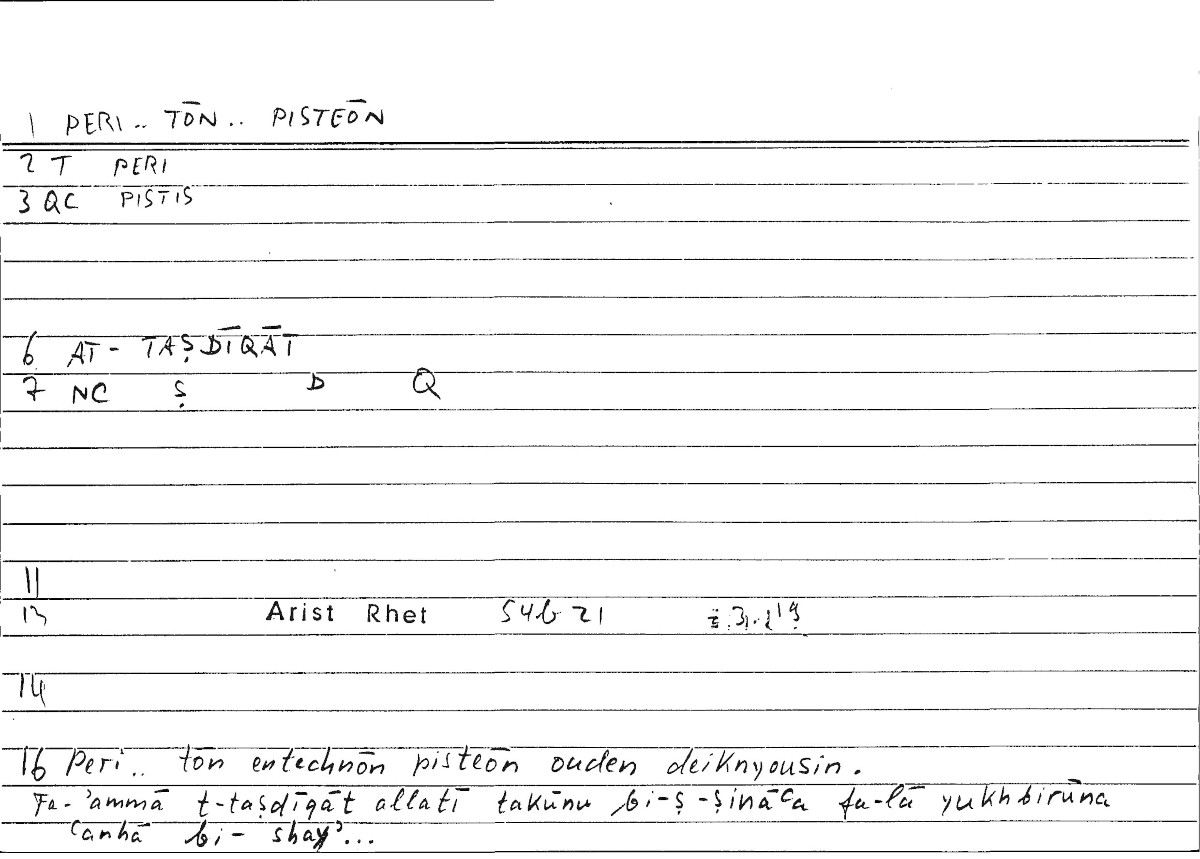 1 PERI.. TŌN.. PISTEŌN
2 T PERI
3 QC PISTIS
6 AT-TAṢDĪQĀT
7 NC Ṣ D Q
11
13 Arist Rhet 54b21
14
16 Peri.. tōn entechnōn pisteōn ouden deiknyousin.
Fa-'ammā t-taṣdīqāt allatī takūnu bi-ṣ-ṣināʿa fa-lā yukhbirūna
ʿanhā bi-shay'...